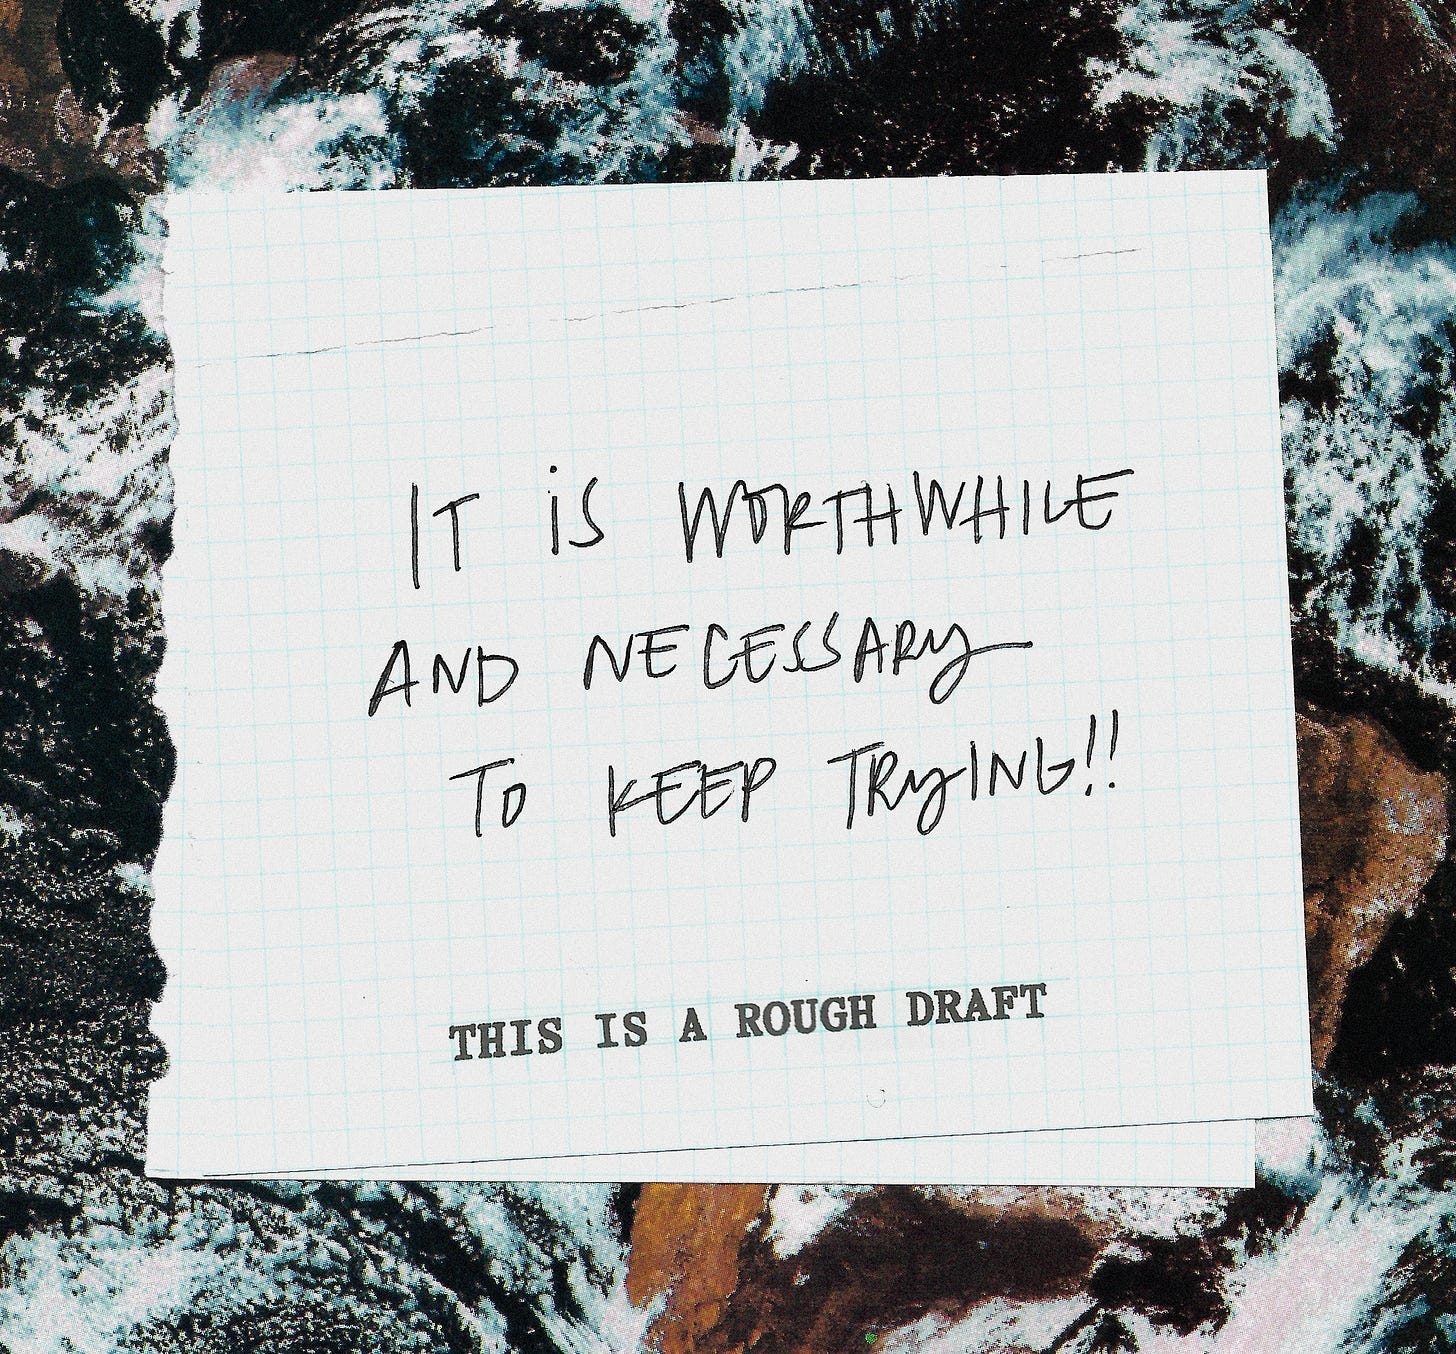 IT iS WORTHWHILE
AND NECESSARy
TO KEEP TRyING!!
THIS IS A ROUGH DRAFT